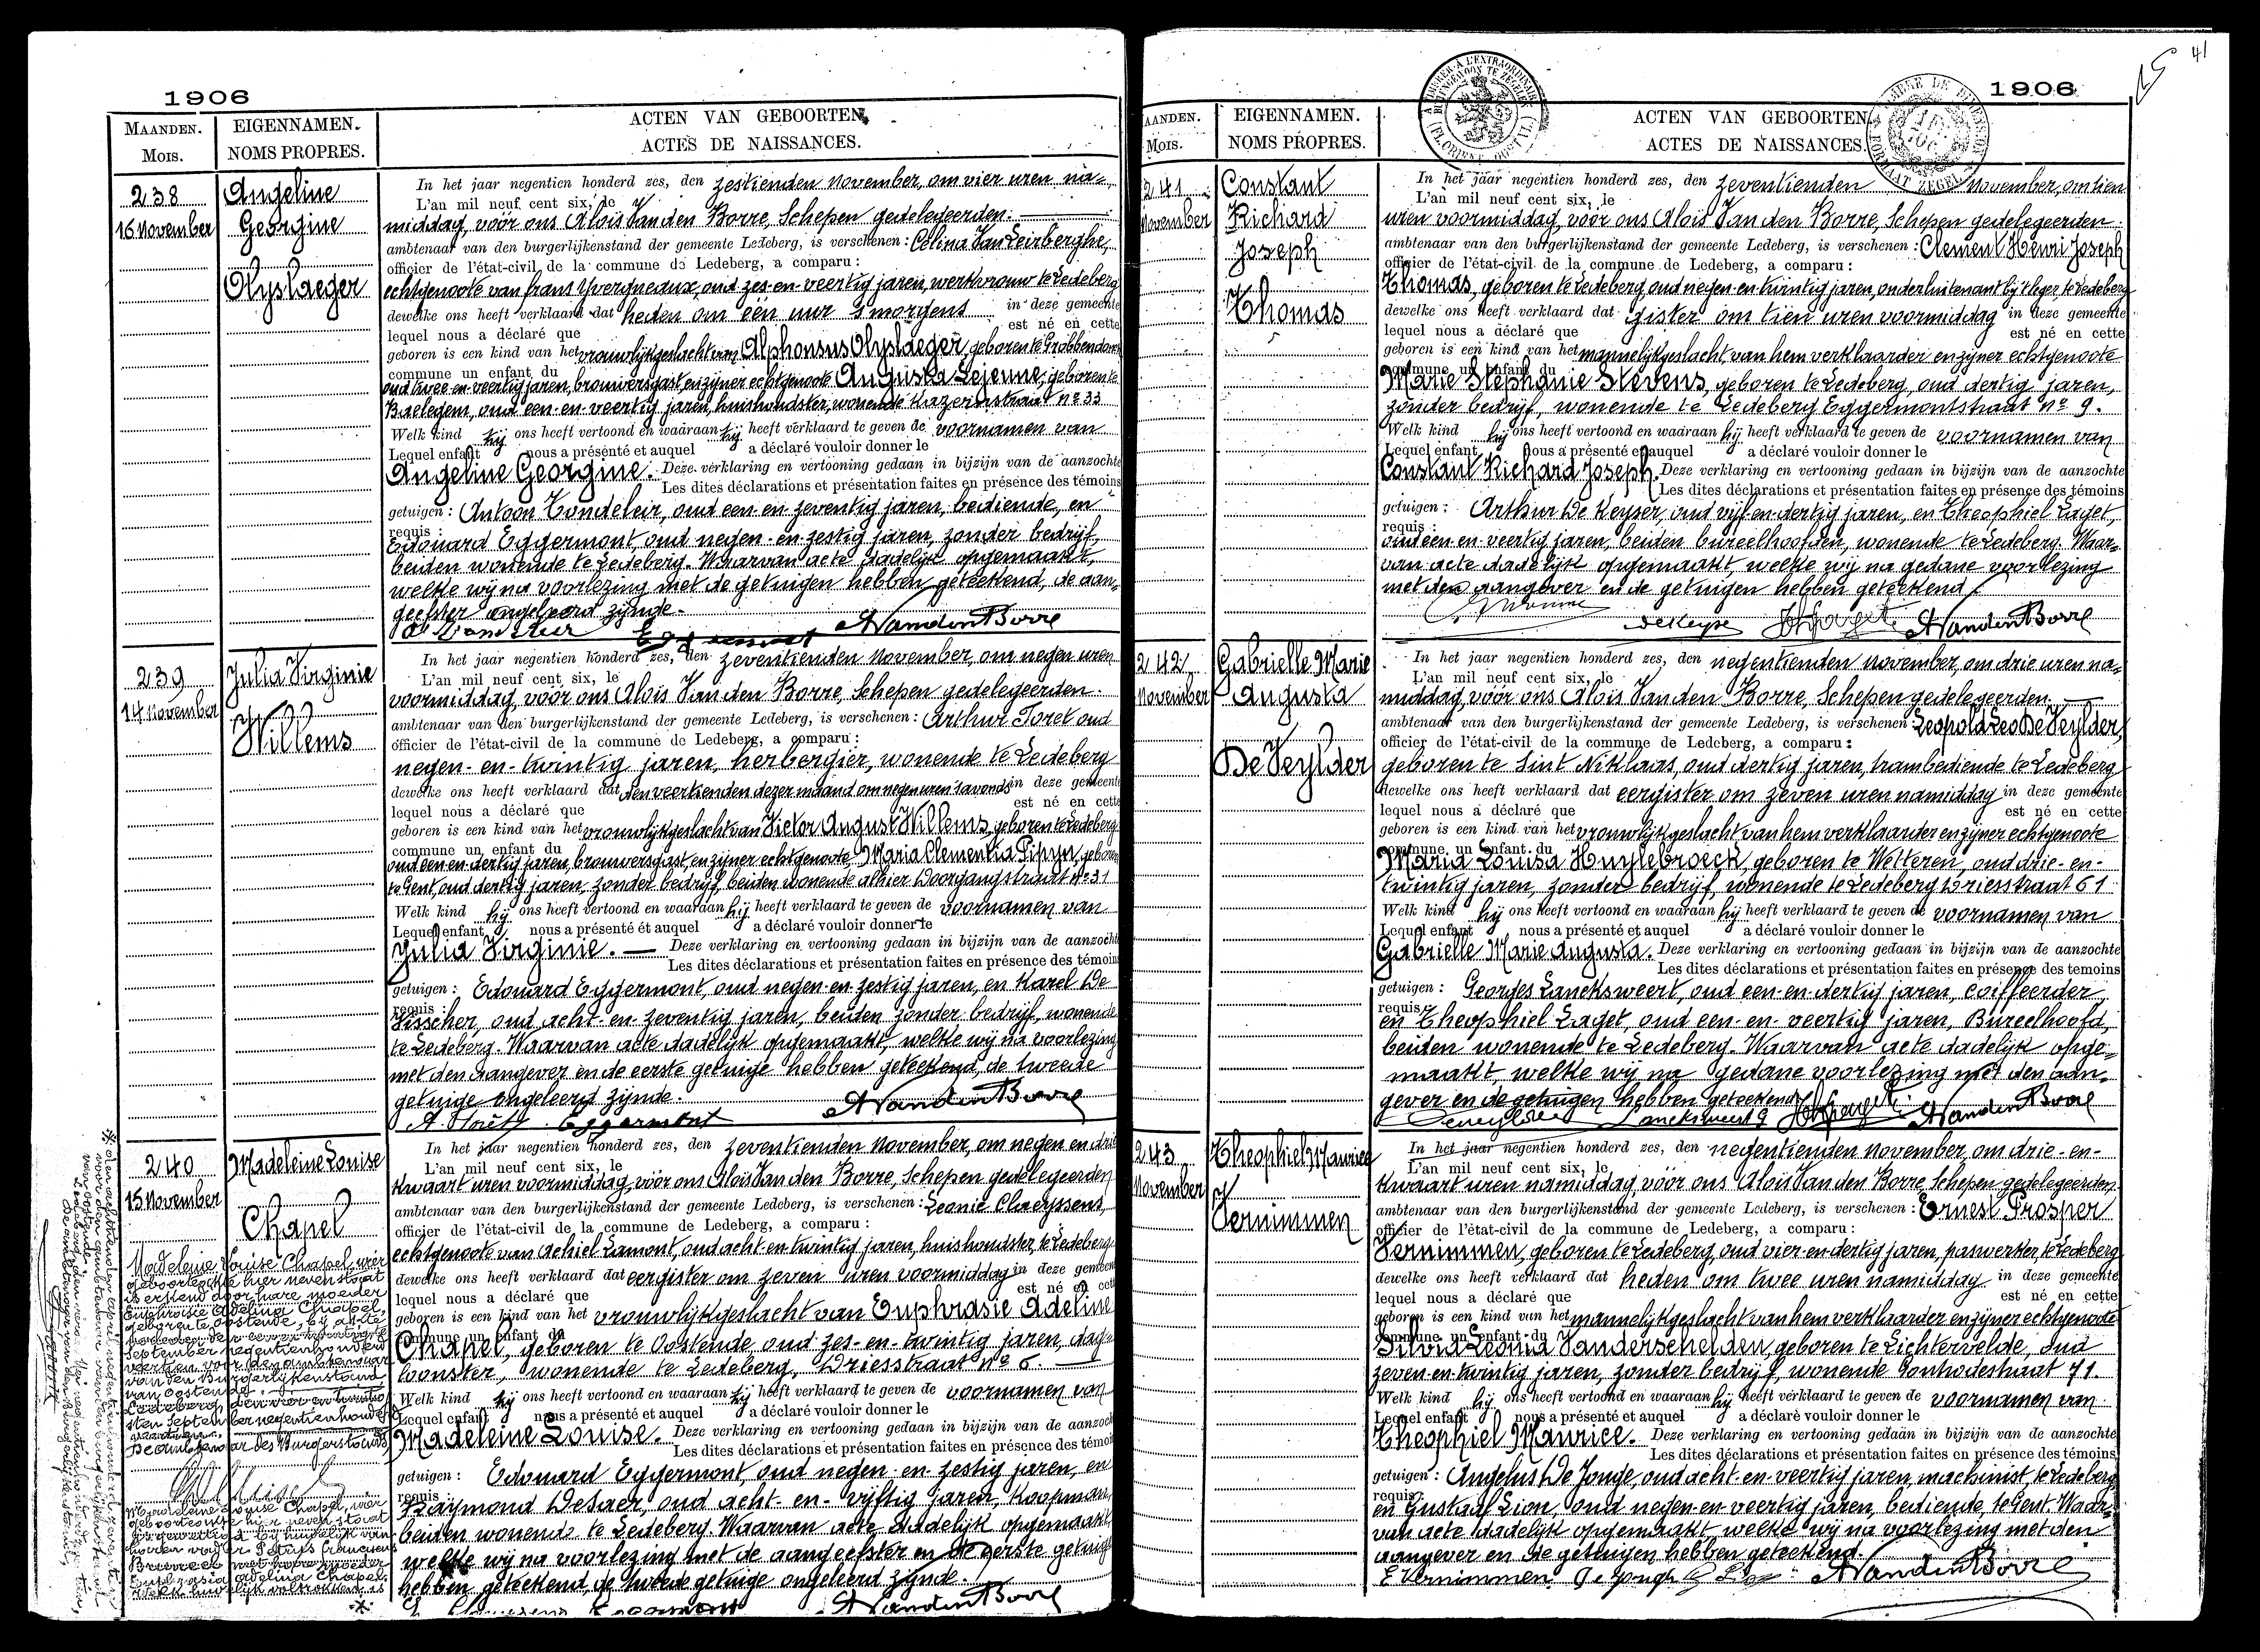 1906
MAANDEN.
MOIS.
EIGENNAMEN.
NOMS PROPRES.
ACTEN VAN GEBOORTEN.
ACTES DE NAISSANCES.
238
16 November
Angeline
Georgine
Olyslaeger
In het jaar negentien honderd zes, den zestienden november, om vier uren na=
L'an mil neuf cent six, le
middag, vóór ons Alois Van den Borre, Schepen gedelegeerden.
ambtenaar van den burgerlijkenstand der gemeente Ledeberg, is verschenen: Celina Van Leirberghe,
officier de l'état-civil de la commune de Ledeberg, a comparu:
echtgenoote van frans Yvergneaux, oud zes-en-veertig jaren, werkvrouw te Ledeberg
dewelke ons heeft verklaard dat heden om één uur 's morgens in deze gemeente
lequel nous a déclaré que est né en cette
geboren is een kind van het vrouwlijk geslacht van Alphonsus Olyslaeger, geboren te Grobbendonck
commune un enfant du
oud twee-en-veertig jaren, brouwersgast, en zijner echtgenoote Augusta Lejeune, geboren te
Baelegem, oud een-en-veertig jaren, huishoudster, wonende Kazernstraat no 33
Welk kind hij ons heeft vertoond en waaraan hij heeft verklaard te geven de voornamen van
Lequel enfant nous a présenté et auquel a déclaré vouloir donner le
Angeline Georgine. Deze verklaring en vertooning gedaan in bijzijn van de aanzochte
Les dites déclarations et présentation faites en présence des témoins
getuigen: Antoon Tondeleir, oud een en zeventig jaren, bediende, en
requis:
Edouard Eggermont, oud negen-en-zestig jaren, zonder bedrijf,
beiden wonende te Ledeberg. Waarvan acte dadelijk opgemaakt,
welke wij na voorlezing met de getuigen hebben geteekend, de aan=
geefster ongeleerd zijnde.
Eggermont A Van den Borre
239
14 November
Julia Virginie
Willems
In het jaar negentien honderd zes, den zeventienden november, om negen uren
L'an mil neuf cent six, le
voormiddag, vóór ons Alois Van den Borre, Schepen gedelegeerden.
ambtenaar van den burgerlijkenstand der gemeente Ledeberg, is verschenen: Arthur Toret oud
officier de l'état-civil de la commune de Ledeberg, a comparu:
negen-en-twintig jaren, herbergier, wonende te Ledeberg
dewelke ons heeft verklaard dat den veertienden dezer maand om negen uren 's avonds in deze gemeente
lequel nous a déclaré que est né en cette
geboren is een kind van het vrouwlijk geslacht van Victor August Willems, geboren te Ledeberg
commune un enfant du
oud een-en-dertig jaren, brouwersgast, en zijner echtgenoote Maria Clementia Pipyn, geboren
te Gent, oud dertig jaren, zonder bedrijf, beiden wonende alhier Doorgangstraat no 31
Welk kind hij ons heeft vertoond en waaraan hij heeft verklaard te geven de voornamen van
Lequel enfant nous a présenté et auquel a déclaré vouloir donner le
Julia Virginie. Deze verklaring en vertooning gedaan in bijzijn van de aanzochte
Les dites déclarations et présentation faites en présence des témoins
getuigen: Edouard Eggermont, oud negen-en-zestig jaren, en Karel De
requis:
Visscher, oud acht-en-zeventig jaren, beiden zonder bedrijf, wonende
te Ledeberg. Waarvan acte dadelijk opgemaakt, welke wij na voorlezing
met den aangever en de eerste getuige hebben geteekend, de tweede
getuige ongeleerd zijnde.
A. Toret Eggermont A Van den Borre
240
15 November
Madeleine Louise
Chapel
In het jaar negentien honderd zes, den zeventienden november, om negen en drie
L'an mil neuf cent six, le
kwaart uren voormiddag, vóór ons Alois Van den Borre, Schepen gedelegeerden
ambtenaar van den burgerlijkenstand der gemeente Ledeberg, is verschenen: Leonie Claeyssens,
officier de l'état-civil de la commune de Ledeberg, a comparu:
echtgenoote van Achiel Lamont, oud acht en twintig jaren, huishoudster, te Ledeberg
dewelke ons heeft verklaard dat eergister om zeven uren voormiddag in deze gemeente
lequel nous a déclaré que est né en cette
geboren is een kind van het vrouwlijk geslacht van Euphrasie Adeline
commune un enfant du
Chapel, geboren te Oostende, oud zes-en-twintig jaren, dag=
loonster, wonende te Ledeberg, Driesstraat no 6.
Welk kind hij ons heeft vertoond en waaraan hij heeft verklaard te geven de voornamen van
Lequel enfant nous a présenté et auquel a déclaré vouloir donner le
Madeleine Louise. Deze verklaring en vertooning gedaan in bijzijn van de aanzochte
Les dites déclarations et présentation faites en présence des témoins
getuigen: Edouard Eggermont, oud negen en zestig jaren, en
requis:
Raymond Desaer, oud acht-en-vijftig jaren, koopman,
beiden wonende te Ledeberg. Waarvan acte dadelijk opgemaakt,
welke wij na voorlezing met de aangeefster en de eerste getuige
hebben geteekend, de tweede getuige ongeleerd zijnde.
A Van den Borre
Madeleine Louise Chapel, wier
geboorteakte hier nevenstaat
is erkend door hare moeder
Euphrasie Adelina Chapel,
geboren te Oostende, bij akte
september negentienhonderd
veertien, voor den ambtenaar
van den Burgerlijkenstand
van Oostende.
Ledeberg, den vier en twintig
sten september negentienhonderd
De Ambtenaar des Burgerstands,
Madeleine Louise Chapel, wier
geboorteakte hier nevenstaat
huwelijk voltrokken is
1906
41
MAANDEN.
MOIS.
EIGENNAMEN.
NOMS PROPRES.
ACTEN VAN GEBOORTEN.
ACTES DE NAISSANCES.
241
November
Constant
Richard
Joseph
Thomas
In het jaar negentien honderd zes, den zeventienden november, om tien
L'an mil neuf cent six, le
uren voormiddag, vóór ons Alois Van den Borre, Schepen gedelegeerden
ambtenaar van den burgerlijkenstand der gemeente Ledeberg, is verschenen: Clement Henri Joseph
officier de l'état-civil de la commune de Ledeberg, a comparu:
Thomas, geboren te Ledeberg, oud negen-en-twintig jaren, onderluitenant bij 't leger, te Ledeberg
dewelke ons heeft verklaard dat gister om tien uren voormiddag in deze gemeente
lequel nous a déclaré que est né en cette
geboren is een kind van het mannelijk geslacht, van hem verklaarder en zijner echtgenoote
commune un enfant du
Marie Stephanie Stevens, geboren te Ledeberg, oud dertig jaren,
zonder bedrijf, wonende te Ledeberg Eggermontstraat no 9.
Welk kind hij ons heeft vertoond en waaraan hij heeft verklaard te geven de voornamen van
Lequel enfant nous a présenté et auquel a déclaré vouloir donner le
Constant Richard Joseph. Deze verklaring en vertooning gedaan in bijzijn van de aanzochte
Les dites déclarations et présentation faites en présence des témoins
getuigen: Arthur De Keyser, oud vijf-en-dertig jaren, en Theophiel Laget,
requis:
oud een-en-veertig jaren, beiden bureelhoofden, wonende te Ledeberg. Waar=
van acte dadelijk opgemaakt, welke wij na gedane voorlezing
met den aangever en de getuigen hebben geteekend.
A Van den Borre
242
November
Gabrielle Marie
Augusta
De Veylder
In het jaar negentien honderd zes, den negentienden november, om drie uren na=
L'an mil neuf cent six, le
middag, vóór ons Alois Van den Borre, Schepen gedelegeerden
ambtenaar van den burgerlijkenstand der gemeente Ledeberg, is verschenen: Leopold Leo De Veylder,
officier de l'état-civil de la commune de Ledeberg, a comparu:
geboren te Sint Niklaas, oud dertig jaren, trambediende te Ledeberg
dewelke ons heeft verklaard dat eergister om zeven uren namiddag in deze gemeente
lequel nous a déclaré que est né en cette
geboren is een kind van het vrouwlijk geslacht van hem verklaarder en zijner echtgenoote
commune un enfant du
Maria Louisa Huylebroeck, geboren te Wetteren, oud drie-en-
twintig jaren, zonder bedrijf, wonende te Ledeberg Driesstraat 61
Welk kind hij ons heeft vertoond en waaraan hij heeft verklaard te geven de voornamen van
Lequel enfant nous a présenté et auquel a déclaré vouloir donner le
Gabrielle Marie Augusta. Deze verklaring en vertooning gedaan in bijzijn van de aanzochte
Les dites déclarations et présentation faites en présence des temoins
getuigen: Georges Lancksweert, oud een-en-dertig jaren, coiffeerder
requis:
en Theophiel Laget, oud een-en-veertig jaren, Bureelhoofd,
beiden wonende te Ledeberg. Waarvan acte dadelijk opge=
maakt, welke wij na gedane voorlezing met den aan=
gever en de getuigen hebben geteekend.
Lancksweert G A Van den Borre
243
November
Theophiel Maurice
Vernimmen
In het jaar negentien honderd zes, den negentienden november, om drie-en-
L'an mil neuf cent six, le
kwaart uren namiddag, vóór ons Alois Van den Borre Schepen gedelegeerden
ambtenaar van den burgerlijkenstand der gemeente Ledeberg, is verschenen: Ernest Prosper
officier de l'état-civil de la commune de Ledeberg, a comparu:
Vernimmen, geboren te Ledeberg, oud vier-en-dertig jaren, paswerker, te Ledeberg
dewelke ons heeft verklaard dat heden om twee uren namiddag in deze gemeente
lequel nous a déclaré que est né en cette
geboren is een kind van het mannelijk geslacht van hem verklaarder en zijner echtgenoote
commune un enfant du
Silvia Leonia Vanderschelden, geboren te Lichtervelde, oud
zeven-en-twintig jaren, zonder bedrijf, wonende Hontrodestraat 71.
Welk kind hij ons heeft vertoond en waaraan hij heeft verklaard te geven de voornamen van
Lequel enfant nous a présenté et auquel a déclaré vouloir donner le
Theophiel Maurice. Deze verklaring en vertooning gedaan in bijzijn van de aanzochte
Les dites déclarations et présentation faites en présence des témoins
getuigen: Angelus De Jonge, oud acht-en-veertig jaren, machinist, te Ledeberg
requis:
en Gustaaf Lion, oud negen-en-veertig jaren, bediende, te Gent. Waar=
van acte dadelijk opgemaakt welke wij na voorlezing met den
aangever en de getuigen hebben geteekend.
E Vernimmen De Jonghe A Van den Borre